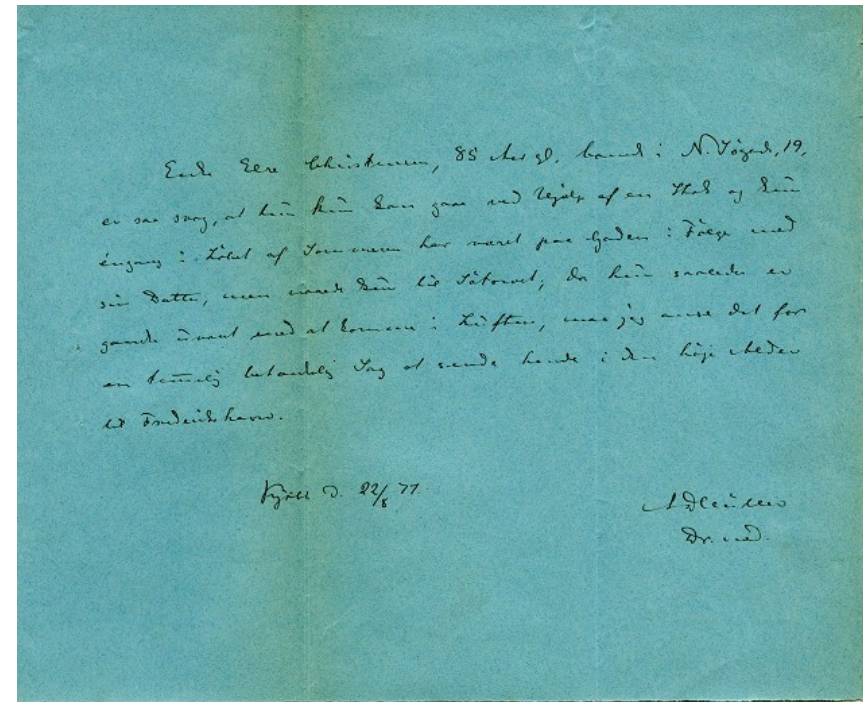 Enke Else Christensen, 85 Aar gl. boend i N. Søgade, 19,
er saa svag, at hun kun kan gaae ved Hjælp af en Stok og kun
éngang i Løbet af Sommeren har været paa Gaden i Følge med
sin Datter, men naaede kun til Søtorvet; da hun saaledes er
ganske uvant med at komme i Luften, maa jeg anse det for
en temmelig betænkelig Sag at sende hende i den høje Alder
til Frederikshavn.
D. 22/8 77.
Dr. med.